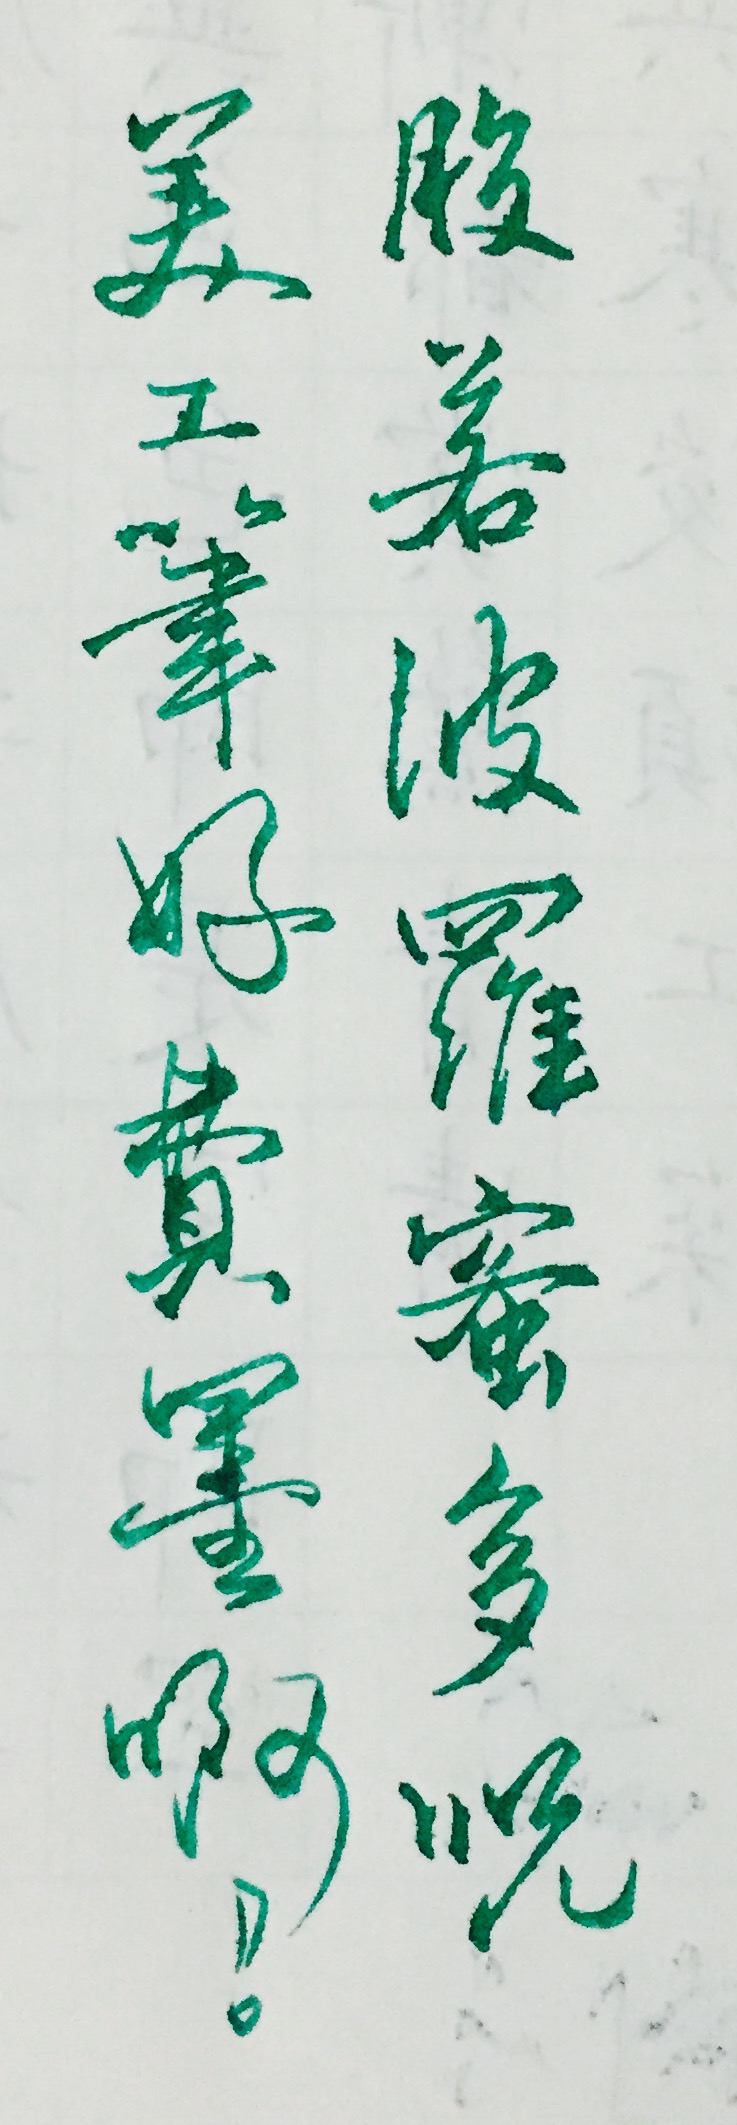 般若波羅蜜多呪
美工筆好費墨啊！